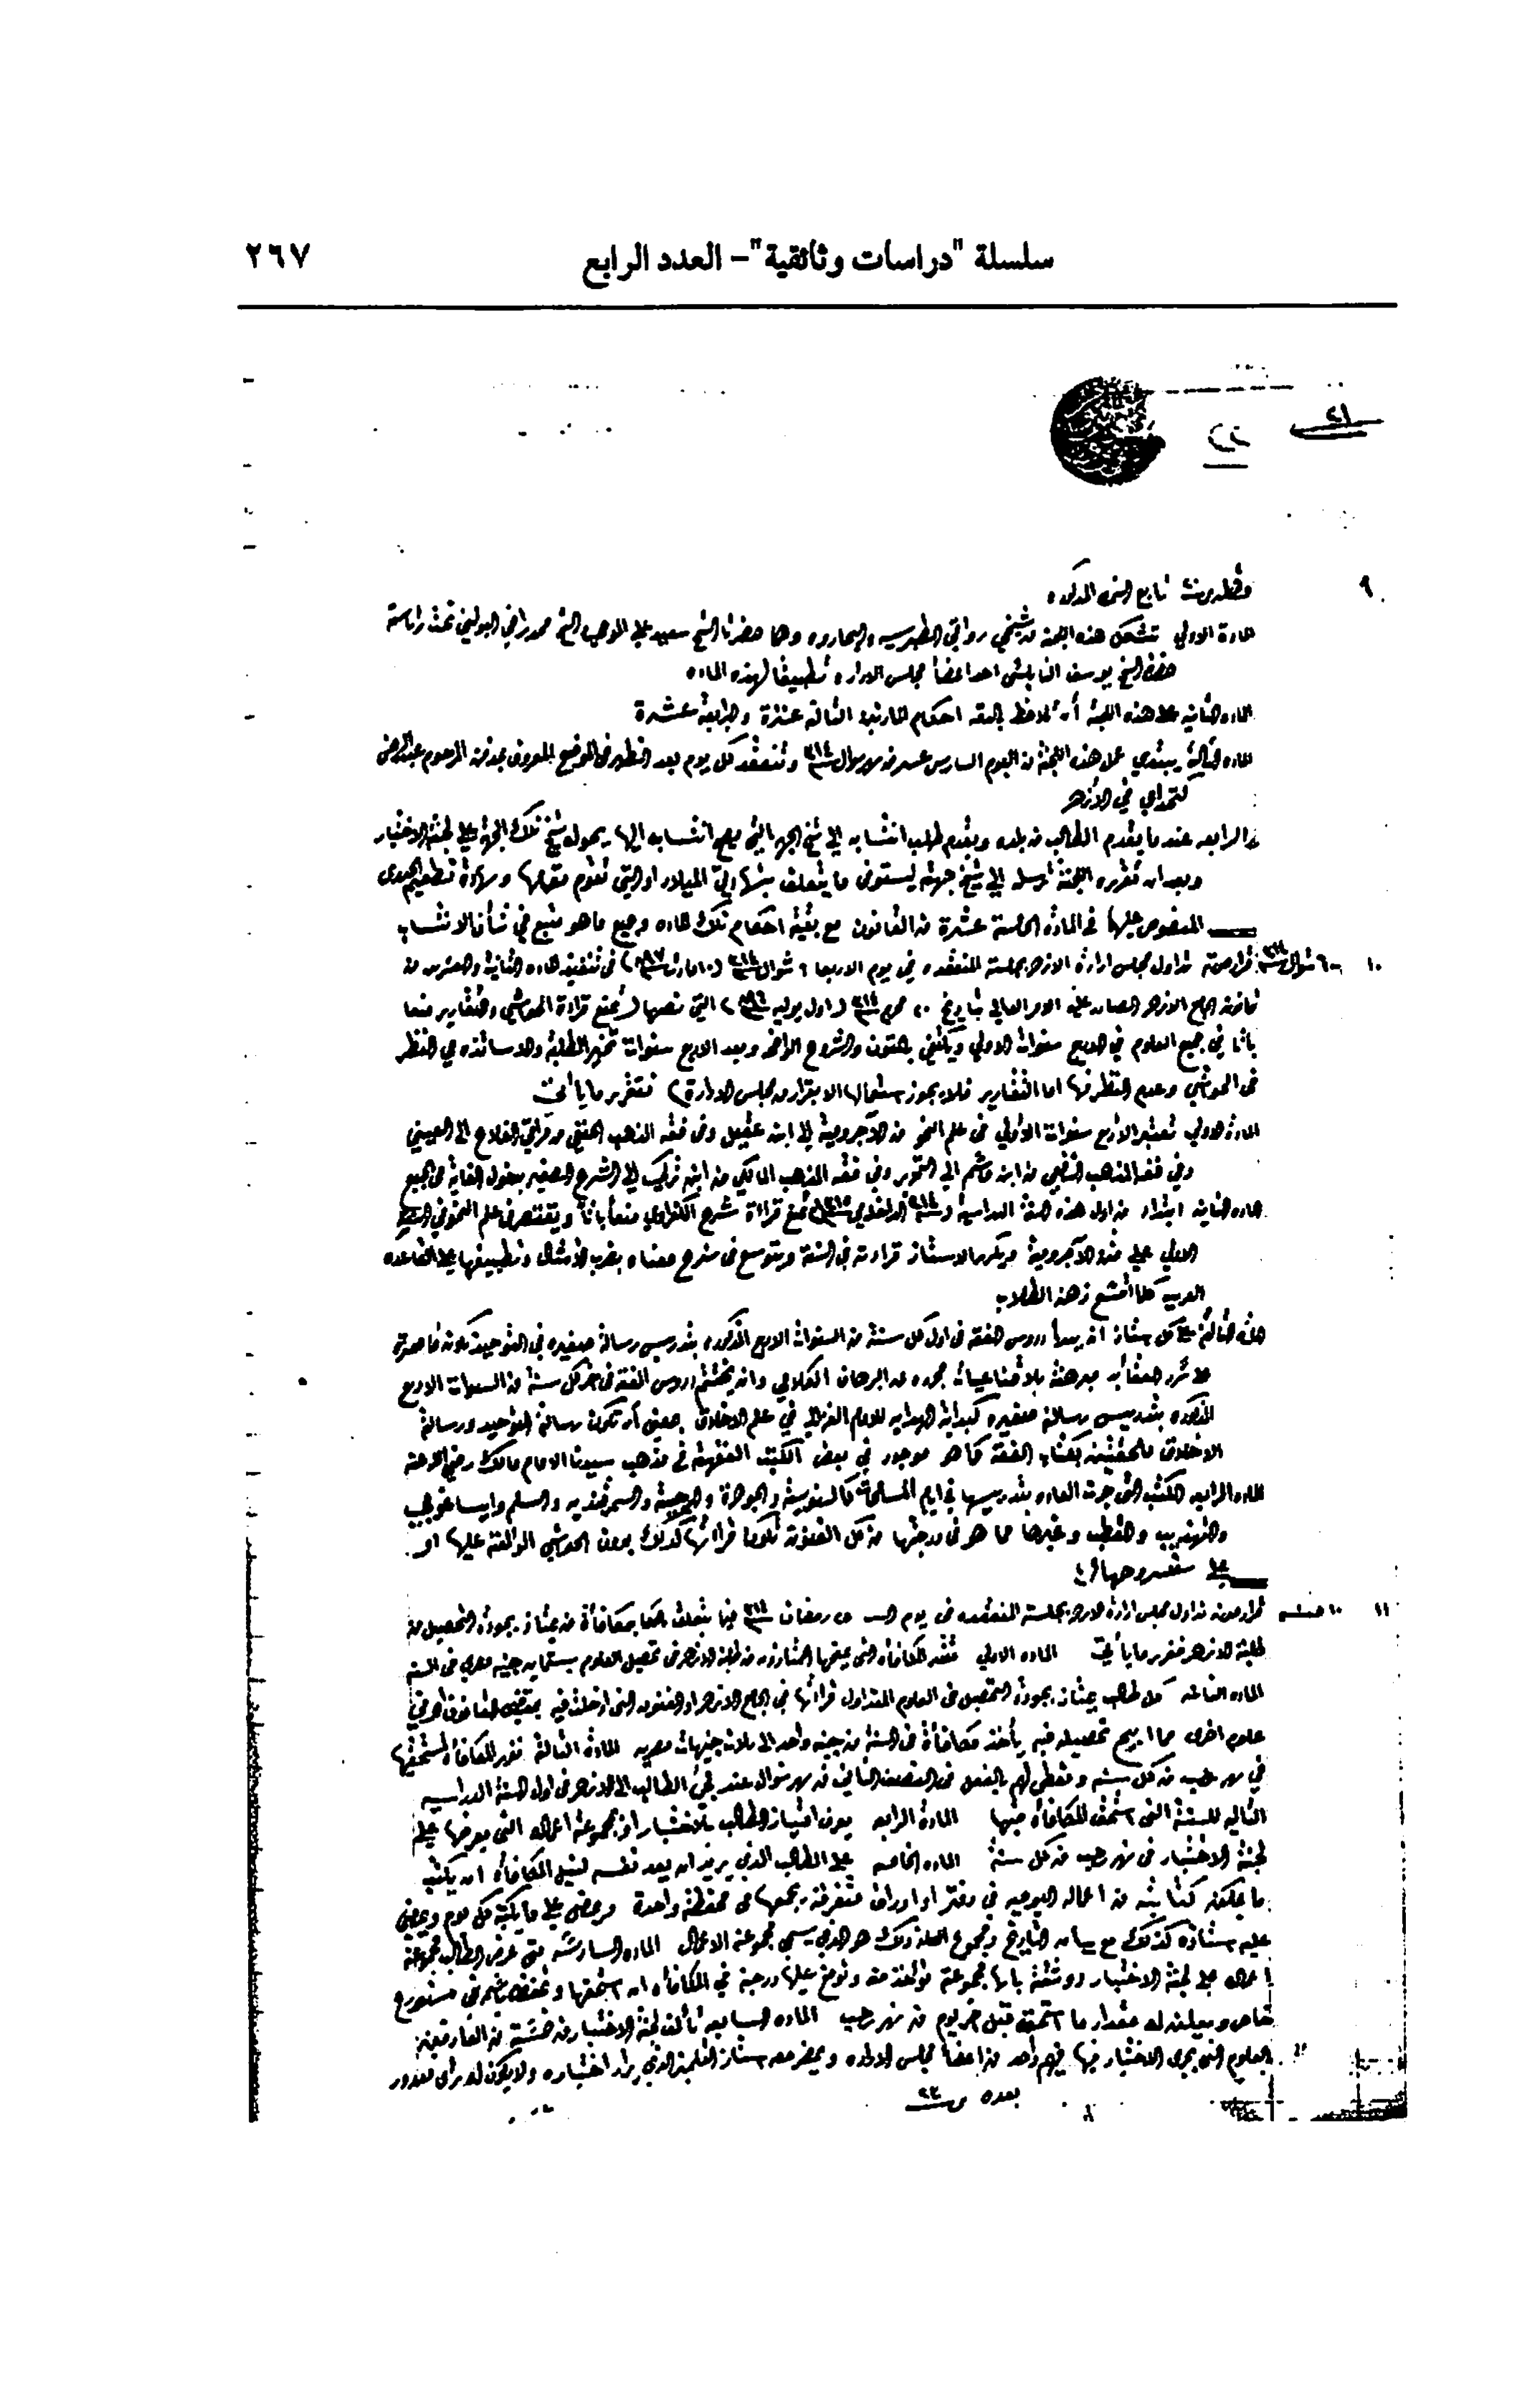 سلسلة "دراسات وثائقية" – العدد الرابع ٢٦٧
٤١
٩ تابع النمرة المذكورة
المادة الاولى تتشكل هذه اللجنة من شيخي رواقي الطبرسيه و وهما حضرتا الشيخ سعيد علي الموجى والشيخ محمد راضي البوليني تحت رئاسة
حضرة الشيخ يوسف النابلسي احد اعضأ مجلس الادارة تطبيقا لهذه الماده
الماده الثانيه على هذه اللجنة أن تلاحظ بالدقه احكام المادتين الثالثة عشرة والرابعة عشرة
الماده الثالثة يبتدي عمل هذه اللجنة من اليوم السادس عشر من شهر شوال سنة ٣١٤ وتنعقد كل يوم بعد الظهر في الموضع المعروف بمدفن المرحوم عبد الرحمن
كتخداي في الأزهر
الرابعه عندما يقدم الطالب من بلده ويقدم طلب انتسابه الى شيخ الجهه التي يصح انتسابه اليها يحوله شيخ تلك الجهة على لجنة الاختبار
وبعد ان تقرره اللجنة ترسله الى شيخ جهته ليستوفى ما يتعلق بشهادتي الميلاد او التي تقوم مقامها وشهادة تطعيم الجدرى
المنصوص عليها في المادة الخامسة عشرة من القانون مع بقية احكام تلك الماده وجميع ما هو متبع في شأن الانتساب
١٠ ٦ شوال سنة ٣١٤ قرار صورته تداول مجلس ادارة الازهر بجلسته المنعقده في يوم الاربعا ٦ شوال سنة ٣١٤ (١٠ مارث سنة ٨٩٧) في تنفيذ الماده الثانية والعشرين من
قانون الجامع الازهر الصادر عليه الامر العالي بتاريخ ٢٠ محرم سنة ٣١٤ (اول يوليه سنة ٨٩٦) التي نصها (تمنع قراءة الحواشي والتقارير منعا
باتا في جميع العلوم في الاربع سنوات الاولى ويكتفي بالمتون والشروح الواضحه وبعد الاربع سنوات تخير الطلبة والاساتذه في النظر
في الحواشي وعدم النظر فيها اما التقارير فلا يجوز استعمالها الا بقرار من مجلس الادارة) فتقرر ما يأتى
المادة الاولى تعتبر الأربع سنوات الأولى في علم النحو من الآجرومية الى ابن عقيل وفي فقه المذهب الحنفي من مراقي الفلاح الى العيني
وفي فقه المذهب الشافعي من ابن قاسم الى التحرير وفي فقه المذهب المالكي من ابن تركي الى الشرح الصغير بدخول الغاية في الجميع
الماده الثانيه ابتداء من اول هذه السنة الدراسية تمنع قراءة شرح الكفراوي منعا باتا ويقتصر في علم النحو في السنة
الاولى على متن الآجرومية ويكرر الاستاذ قراءته في السنة ويتوسع في شرح معناه بضرب الأمثال وتطبيقها على القاعده
العربيه كلما اتسع ذهن الطلاب
الماده الثالثة على كل استاذ ان يبدأ دروس الفقه في اول كل سنة من السنوات الاربع المذكوره بتدريس رسالة صغيره في التوحيد تكون قاصرة
على سرد العقأيد مبرهنة بالاقناعيات مجرده من البرهان الكلامي وانه يختتم دروس الفقه في آخر كل سنة من السنوات الاربع
المذكوره بتدريس رسالة صغيره كبداية الهدايه للامام الغزالي في علم الاخلاق بمعنى أن تكون رسالة التوحيد ورسالة
الاخلاق ملحقتين بكتاب الفقه كما هو موجود في بعض الكتب الفقهية في مذهب سيدنا الامام مالك رضي الله عنه
الماده الرابعه الكتب التى جرت العاده بتدريسها في ايام المسامحة كالسنوسية والجوهرة والرحبية والسمرقنديه والسلم وايساغوجي
والتهذيب والقطب وغيرها مما هو في درجتها من كل الفنون تكون قرائتها كذلك بدون الحواشي المؤلفة عليها او
على شروحها
١١ ١٠ منه قرار صورته تداول مجلس ادارة الازهر بجلسته المنعقده في يوم السبت رمضان سنة ٣١٤ فيما يتعلق بمكافأة من يمتاز بجودة التحصيل من
طلبة الازهر فتقرر ما يأتي الماده الاولى تقدر المكافأه التى يمنحها الممتازون من طلبة الازهر في تحصيل العلوم بستمايه جنيه مصري في السنه
الماده الثانيه كل طالب يمتاز بجودة التحصيل في العلوم المتداول قرائتها في الجامع الازهر او الفنون التى ادخلت فيه بمقتضى القانون او في
علوم اخرى مما ابيح تحصيله فيه يأخذ مكافأة في السنة من جنيه واحد الى ثلاث جنيهات مصريه المادة الثالثة تقرر المكافأة لمستحقيها
في شهر رجب من كل سنه وتعطى لهم بالفعل في النصف الثاني من شهر شوال عند مجئ الطالب الى الازهر في اول السنة الدراسيه
التاليه للسنة التى استحق المكافأه فيها المادة الرابعه يعرف امتياز الطالب بالاختبار او بمجموعة اعماله التى يعرضها على
لجنة الاختبار في شهر رجب من كل سنة الماده الخامسه على الطالب الذي يريد ان يعد نفسه لنيل المكافأه ان يكتب
ما يمكنه كتابته من اعماله اليوميه في دفتر او اوراق متفرقة يجمعها في محفظة واحدة ويمضى على ما يكتبه كل يوم ويمضى
عليه استاذه كذلك مع بيان التاريخ ومجموع ذلك هو الذي يسمى مجموعة الاعمال الماده السادسة متى عرض الطالب مجموعة
اعماله على لجنة الاختبار ووثقت بانها مجموعة تؤخذ منه وتوضع عليها درجة في المكافأه ان استحقها وتحفظ باسمه في مستودع
خاص ويعلن له مقدار ما استحقه قبل آخر يوم من شهر رجب الماده السابعه تألف لجنة الاختبار من خمسة من العارفين
بالعلوم التى يجري الاختبار فيها فيهم واحد من اعضأ مجلس الاداره ويحضر معهم استاذ التلميذ الذي يراد اختباره ولا يكون له رأى
بعده ص ٤٢